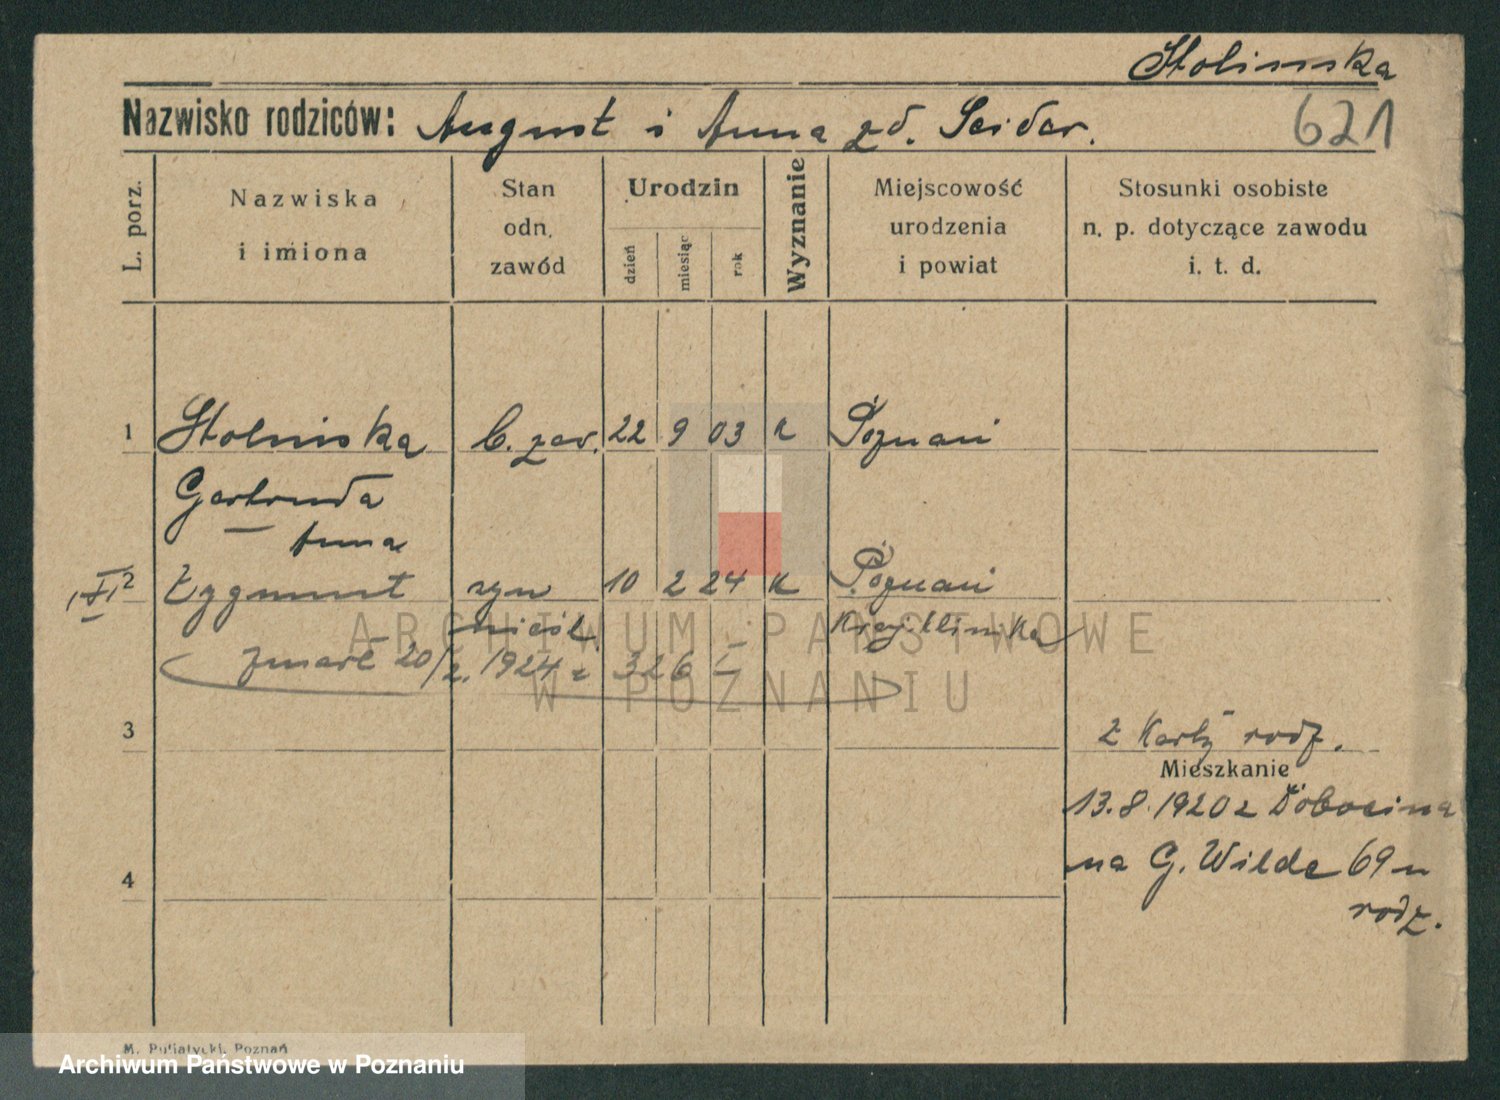 Stolinska
Nazwisko rodziców: August i Anna zd. Seider.
621
L. porz.
Nazwiska
i imiona
Stan
odn.
zawód
Urodzin
dzień
miesiąc
rok
Wyznanie
Miejscowość
urodzenia
i powiat
Stosunki osobiste
n. p. dotyczące zawodu
i. t. d.
1 Stolinska b. zaw. 22 9 03 k Poznań
Gertruda
Anna
2 Zygmunt syn 10 2 24 k Poznań
nieśl. Kraj. Klinika
zmarł 20/2. 1924 r 326
3
z Karty rodz.
Mieszkanie
13.8.1920 z
na G. Wilde 69 u
4
rodz.
M. Putiatycki, Poznań
ARCHIWUM PAŃSTWOWE
W POZNANIU
Archiwum Państwowe w Poznaniu